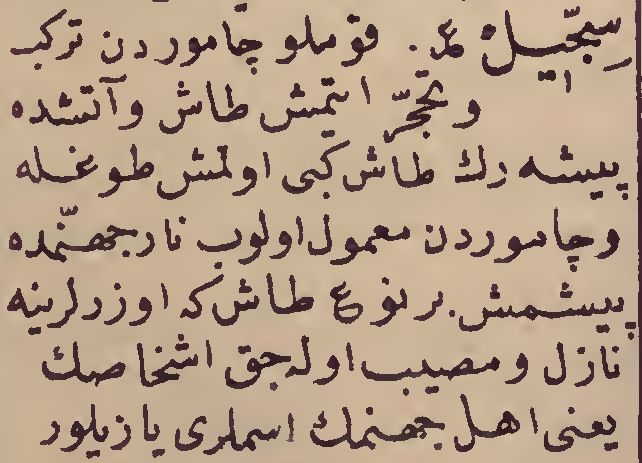 سِجّيل ع. قوملو چاموردن تركب
و تحجّر ايتمش طاش و آتشده
پيشه رك طاش كبى اولمش طوغله
و چاموردن معمول اولوب نار جهنّمده
پيشمش. بر نوع طاش كه اوزرلرينه
نازل و مصيب اوله جق اشخاصك
يعنى اهل جهنمك اسملرى يازيلور